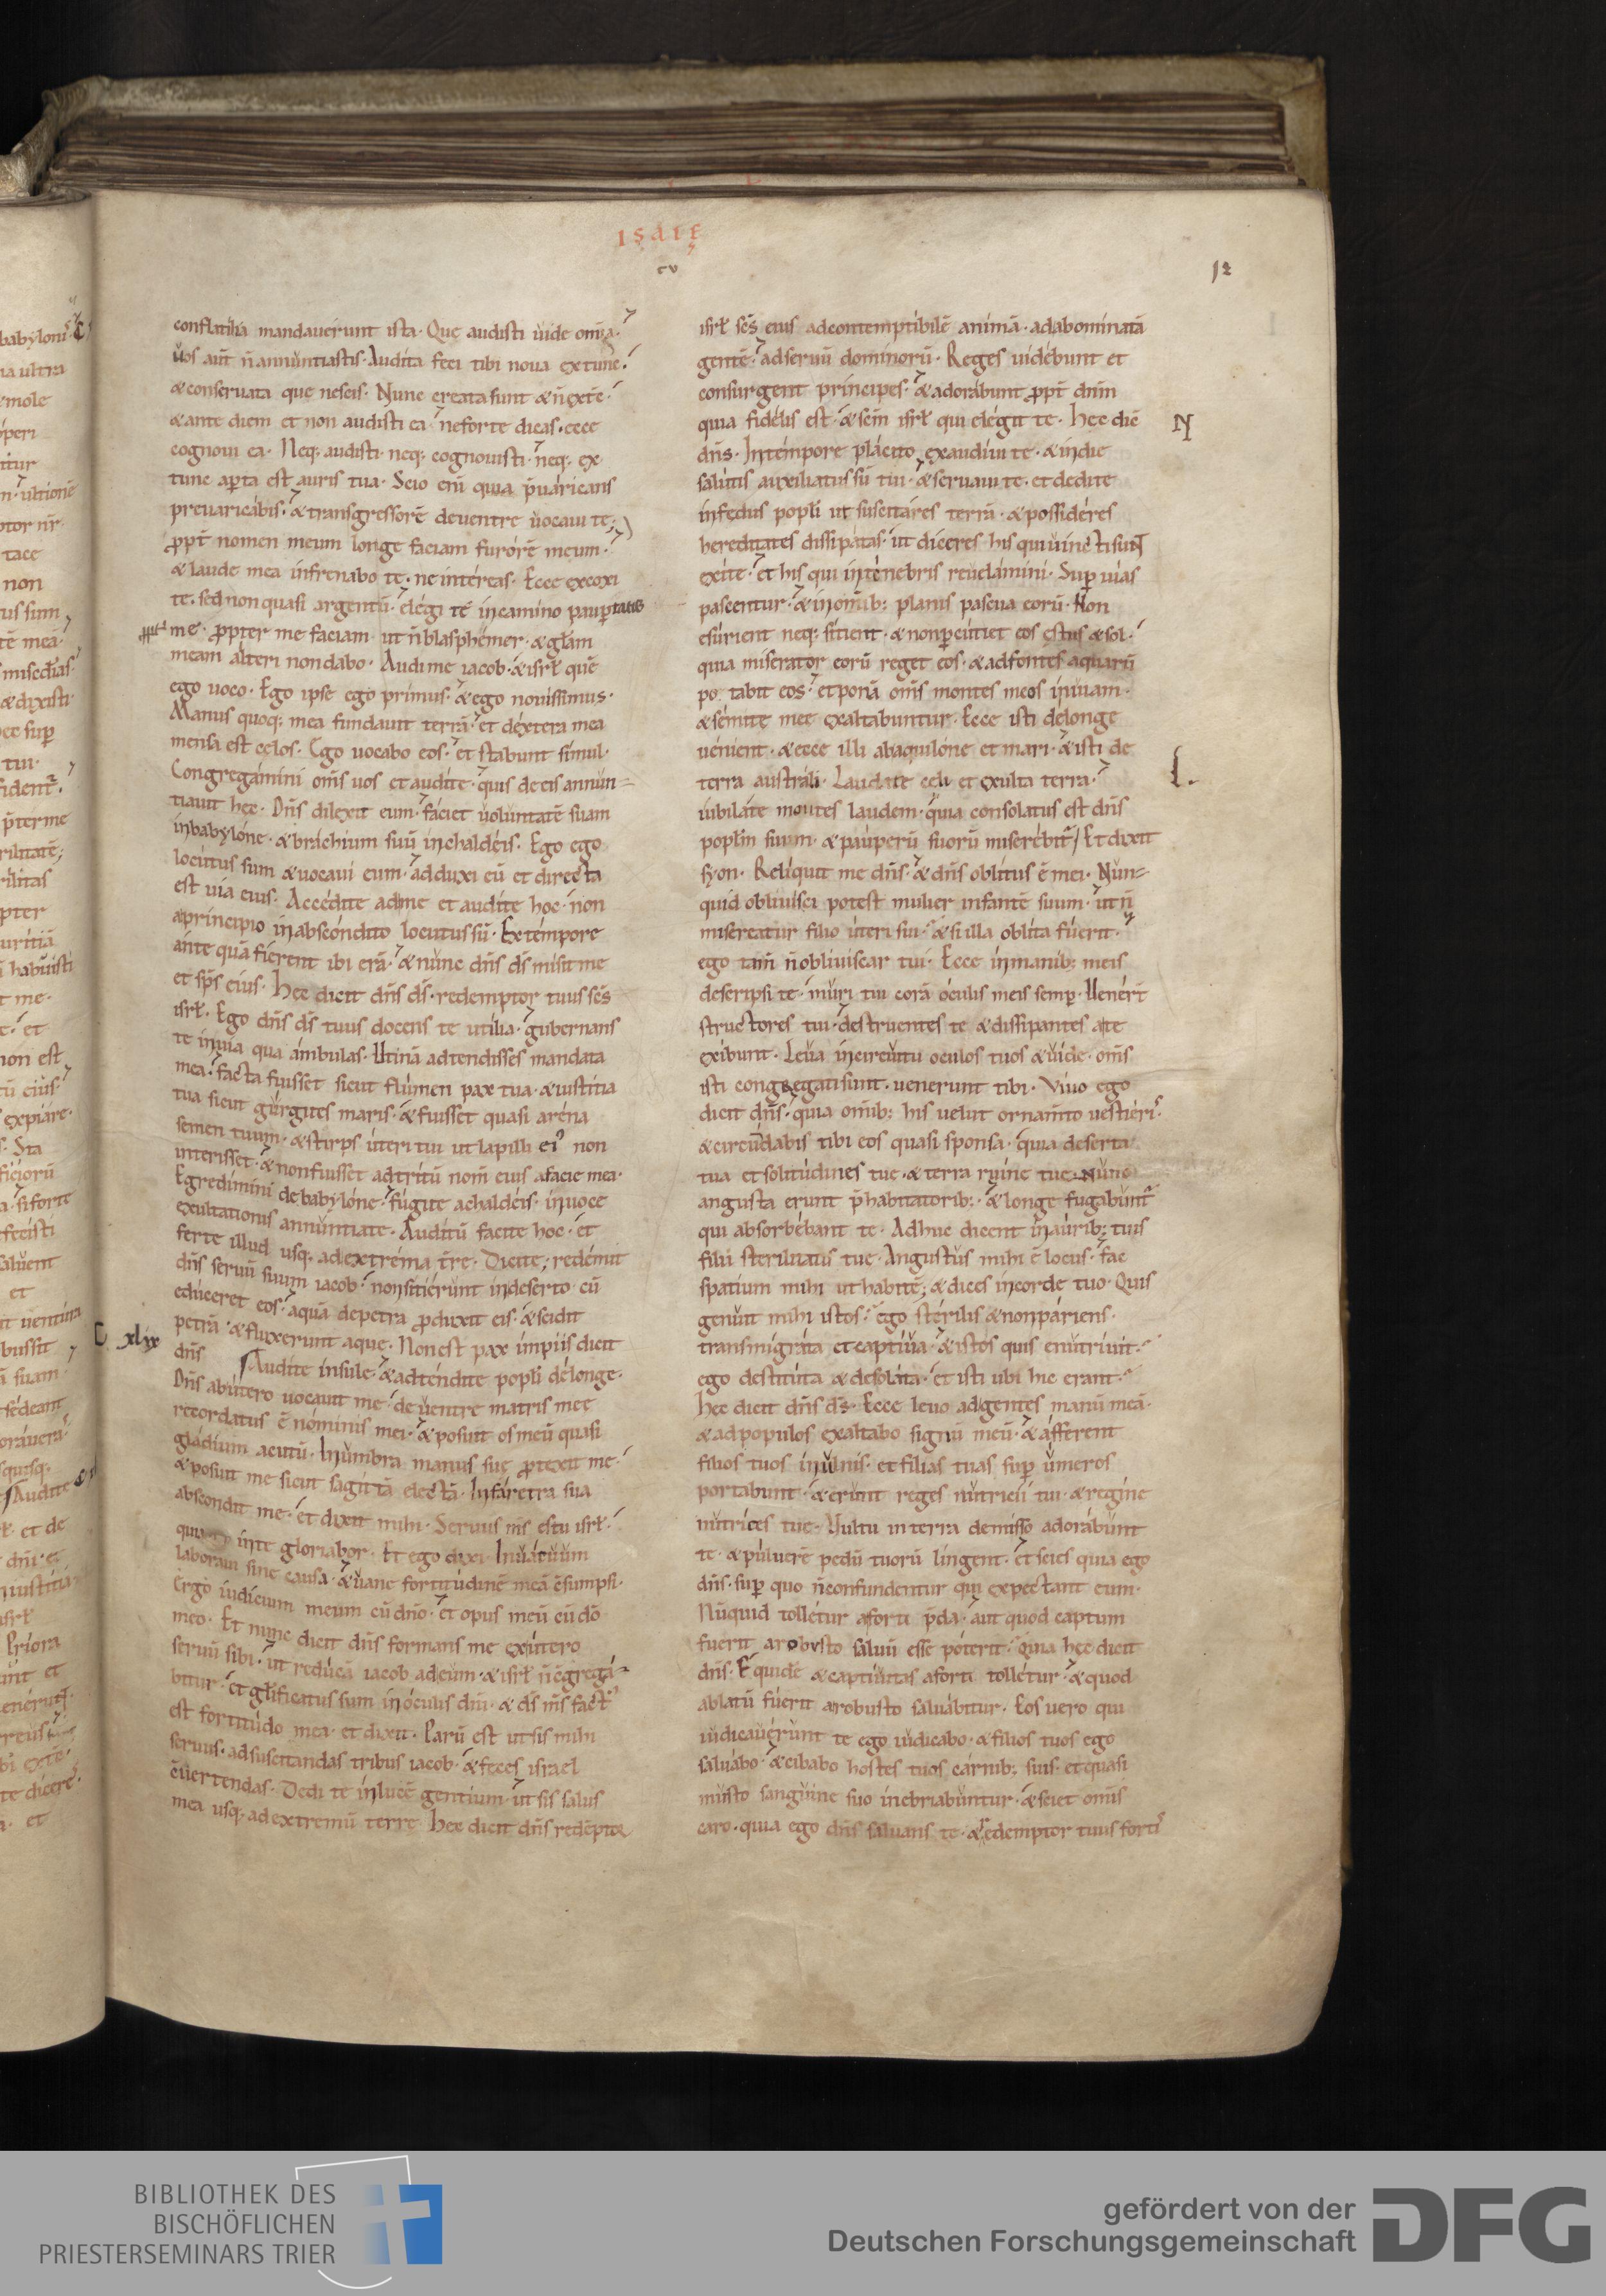 ISAIĘ
cv
12
conflatilia mandauerunt ista. Que audisti uide om̄ia.
uos aut̄ n̄ annuntiastis. Audita feci tibi noua ex tunc.
& conseruata que nescis. Nunc creata sunt & n̄ ex tc̄.
& ante diem et non audisti ea. ne forte dicas. ecce
cognoui ea. Neq; audisti. neq; cognouisti. neq; ex
tunc aꝑta est auris tua. Scio eni̅ quia p̄uaricans
preuaricabis. & transgressorē de uentre uocaui te;
ꝓpt̄ nomen meum longe faciam furorē meum.
& laude mea infrenabo te. ne intereas. Ecce excoxi
te. sed non quasi argentū. elegi te in camino pauꝑtatis
me. ꝓpter me faciam ut n̄ blasphemer. & gl̄am
meam alteri non dabo. Audi me iacob. & isrł quē
ego uoco. Ego ipse ego primus. & ego nouissimus.
Manus quoq; mea fundauit terrā. et dextera mea
mensa est celos. Ego uocabo eos. et stabunt simul.
Congregamini om̄s uos et audite. quis de eis annun-
tiauit hęc. Dn̄s dilexit eum. faciet uoluntatē suam
in babylone. & brachium suū in chaldeis. Ego ego
locutus sum & uocaui eum. adduxi eū et directa
est uia eius. Accedite ad me et audite hoc. non
a principio in abscondito locutus sū. Ex tempore
ante quā fierent ibi erā. & nunc dn̄s ds̄ misit me
et sps̄ eius. Hęc dicit dn̄s ds̄. redemptor tuus scs̄
isrł. Ego dn̄s ds̄ tuus docens te utilia. gubernans
te in uia qua ambulas. Utinā adtendisses mandata
mea. facta fuisset sicut flumen pax tua. & iustitia
tua sicut gurgites maris. & fuisset quasi arena
semen tuum. & stirps uteri tui ut lapilli ei' non
interisset. & non fuisset adtritū nom̄ eius a facie mea.
Egredimini de babylone. fugite a chaldeis. in uoce
exultationis annuntiate. Auditū facite hoc. et
ferte illud usq; ad extrema tr̄e. Dicite; redemit
dn̄s seruū suum iacob. non sitierunt in deserto. cū
educeret eos. aquā de petra ꝓduxit eis. & scidit
petrā. & fluxerunt aque. Non est pax impiis dicit
xlix dn̄s Audite insule. & adtendite popłi de longe.
Dn̄s ab utero uocauit me. de uentre matris mee
recordatus ē nominis mei. & posuit os meū quasi
gladium acutū. In umbra manus suę ꝓtexit me.
& posuit me sicut sagittā electā. In faretra sua
abscondit me. et dixit mihi. Seruus ms̄ es tu isrł.
quia in te gloriabor. Et ego dixi. In uacuum
laboraui sine causa. & uane fortitudinē meā c̄sumpsi.
Ergo iudicium meum cū dn̄o. et opus meū cū dō
meo. Et nunc dicit dn̄s formans me ex utero
seruū sibi. ut reducā iacob ad eum. & isrł n̄ c̄grega-
bitur. et gl̄ificatus sum in oculis dn̄i. & ds̄ ms̄ fact'
est fortitudo mea. et dixit. Parū est ut sis mihi
seruus. ad suscitandas tribus iacob. & feces israel
c̄uertendas. Dedi te in lucē gentium. ut sis salus
mea usq; ad extremū terre. Hęc dicit dn̄s redēptor
isrł scs̄ eius ad contemptibilē animā. ad abominatā
gentē. ad seruū dominorū. Reges uidebunt et
consurgent principes. & adorabunt ꝓpt̄ dn̄m
quia fidelis est. & scm̄ isrł qui elegit te. Hęc dic̄
N
dn̄s. In tempore placito exaudiui te. & in die
salutis auxiliatus sū tui. & seruaui te. et dedi te
in fedus popłi ut suscitares terrā. & possideres
hereditates dissipatas. ut diceres his qui uincti sunt
exite. et his qui in tenebris reuelamini. Suꝑ uias
pascentur. & in om̄ib; planis pascua eorū. Non
esurient neq; sitient. & non ꝑcutiet eos ęstus & sol.
quia miserator eorū reget eos. & ad fontes aquarū
po tabit eos. et ponā om̄s montes meos in uiam.
& semite mee exaltabuntur. Ecce isti de longe
uenient. & ecce illi ab aquilone et mari. & isti de
terra australi. Laudate celi et exulta terra.
L.
iubilate montes laudem. quia consolatus est dn̄s
popłm suum. & pauperū suorū miserebit̄. Et dixit
syon. Reliquit me dn̄s. & dn̄s oblitus ē mei. Nun-
quid obliuisci potest mulier infantē suum. ut n̄
misereatur filio uteri sui. & si illa oblita fuerit.
ego tam̄ n̄ obliuiscar tui. Ecce in manib; meis
descripsi te. muri tui corā oculis meis semꝑ. Uener̄t
structores tui. destruentes te & dissipantes a te
exibunt. Leua in circuitu oculos tuos & uide. om̄s
isti congregati sunt. uenerunt tibi. Viuo ego
dicit dn̄s. quia om̄ib; his uelut ornam̄to uestieris.
& circūdabis tibi eos quasi sponsa. quia deserta
tua et solitudines tue. & terra ruine tue. nunc
angusta erunt p̄ habitatorib;. & longe fugabunt̄
qui absorbebant te. Adhuc dicent in aurib; tuis
filii sterilitatis tue. Angustus mihi ē locus. fac
spatium mihi ut habitē; & dices in corde tuo. Quis
genuit mihi istos. ego sterilis & non pariens.
transmigrata et captiua. & istos quis enutriuit.
ego destituta & desolata. et isti ubi hic erant.
Hęc dicit dn̄s ds̄. Ecce leuo ad gentes manū meā.
& ad populos exaltabo signū meū. & afferent
filios tuos in ulnis. et filias tuas suꝑ umeros
portabunt. & erunt reges nutricii tui. & regine
nutrices tue. Vultu in terra demisso adorabunt
te. & puluerē pedū tuorū lingent. et scies quia ego
dn̄s. suꝑ quo n̄ confundentur qui expectant eum.
Nūquid tolletur a forti p̄da. aut quod captum
fuerit a robusto saluū esse poterit. Quia hęc dicit
dn̄s. Equidē & captiuitas a forti tolletur. & quod
ablatū fuerit a robusto saluabitur. Eos uero qui
iudicauerunt te ego iudicabo. & filios tuos ego
saluabo. & cibabo hostes tuos carnib; suis. et quasi
musto sanguine suo inebriabuntur. & sciet om̄is
caro. quia ego dn̄s saluans te. & redemptor tuus forti'
BIBLIOTHEK DES
BISCHÖFLICHEN
PRIESTERSEMINARS TRIER
gefördert von der
Deutschen Forschungsgemeinschaft
DFG